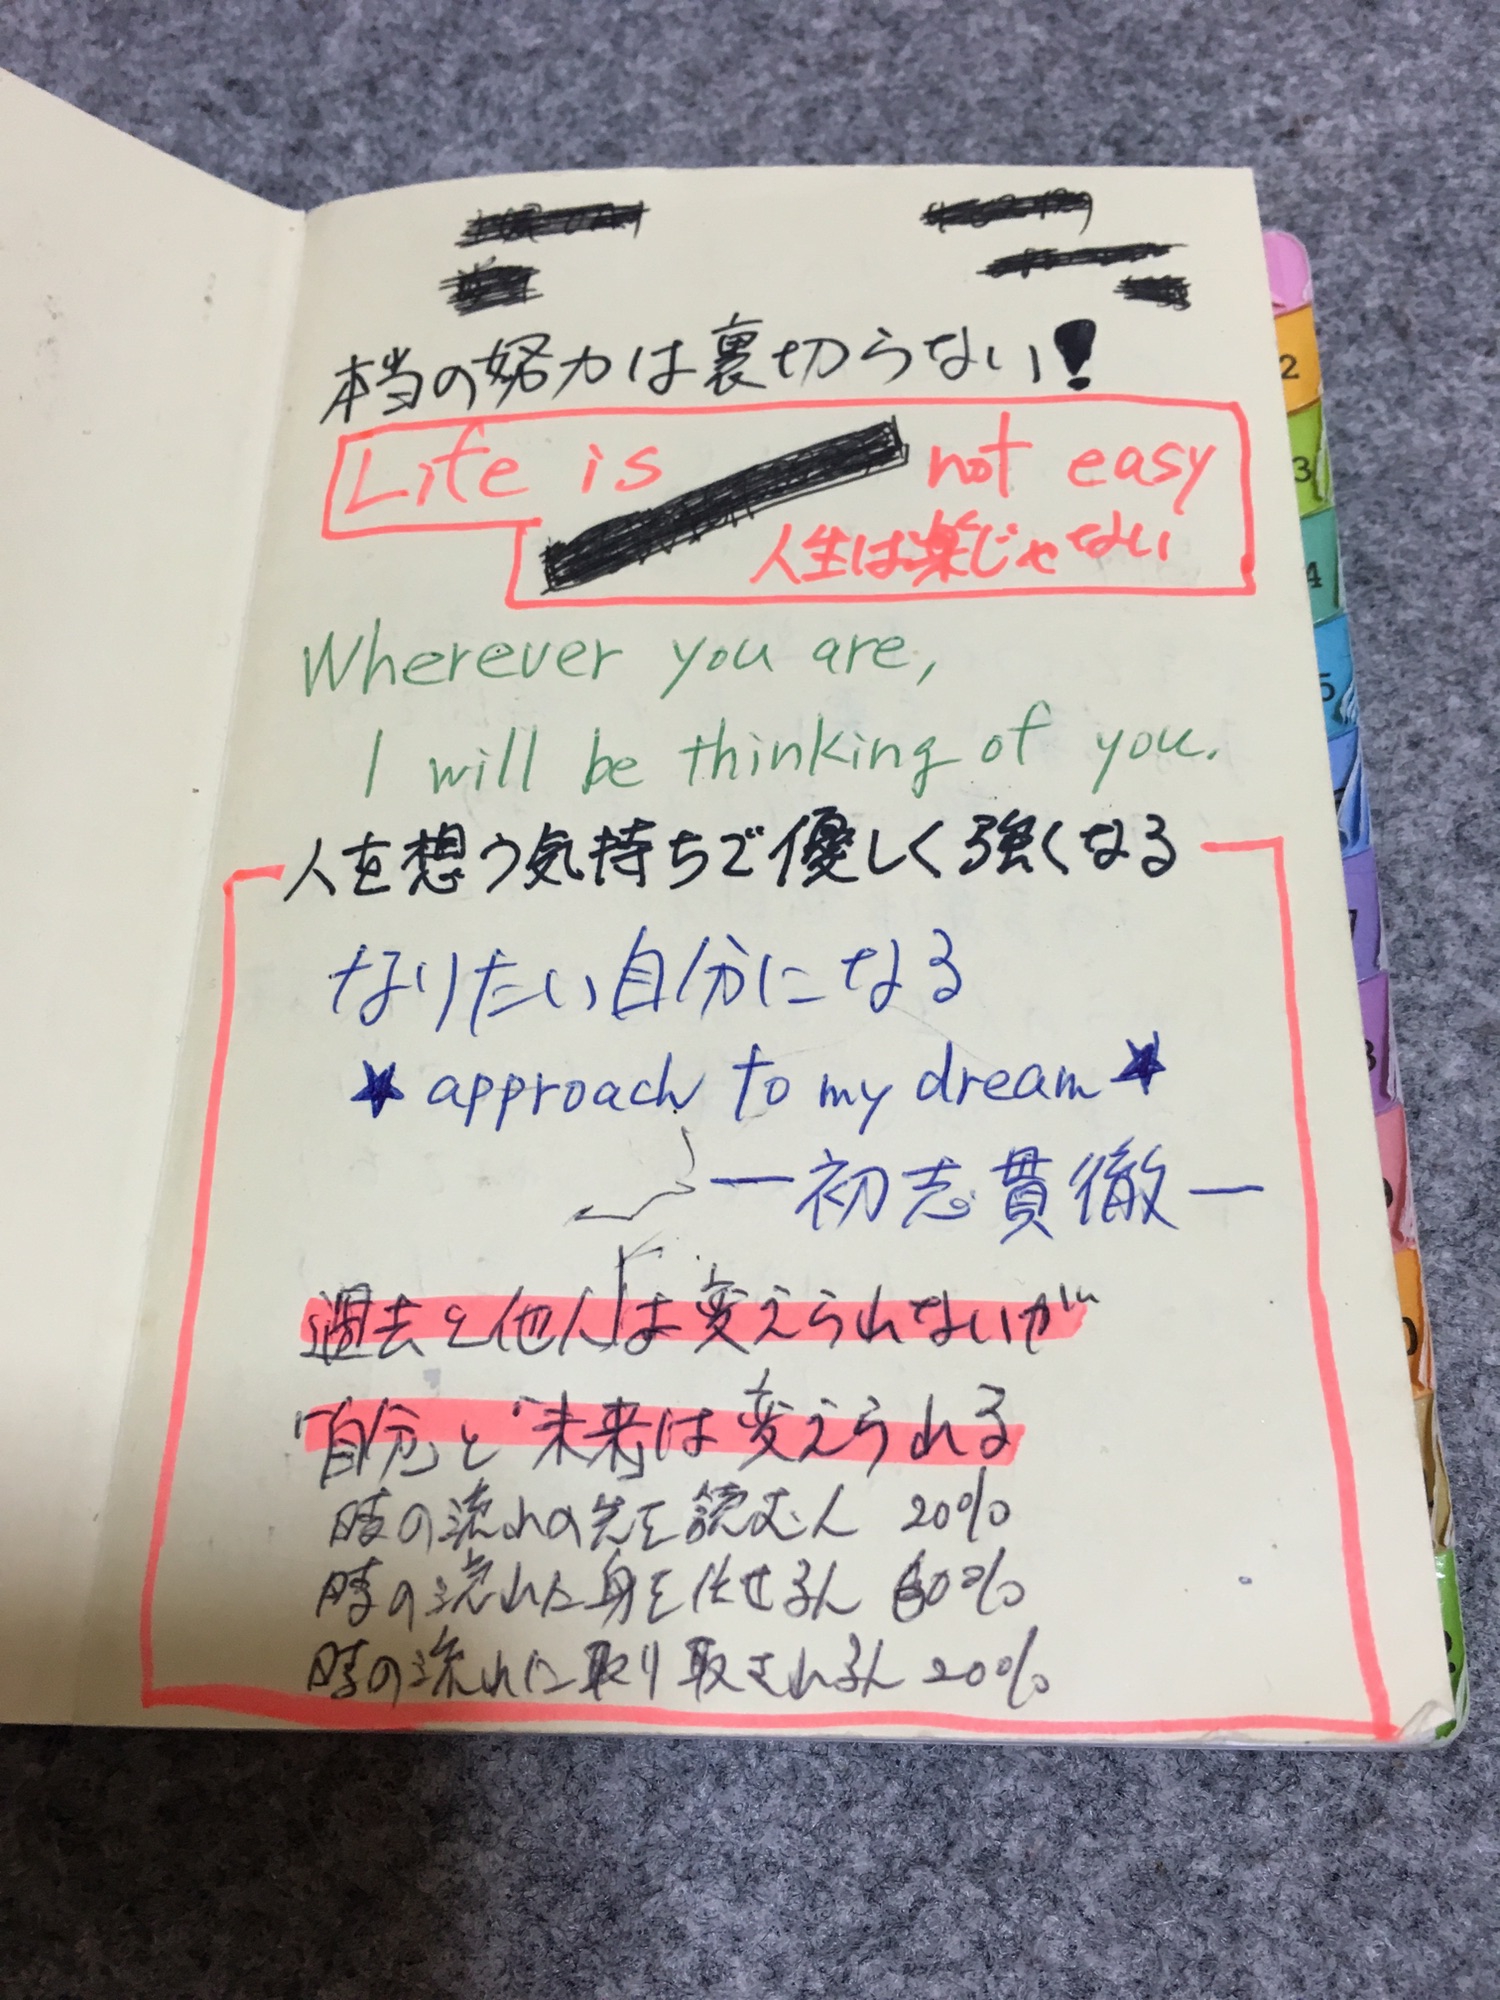 本当の努力は裏切らない!
Life is not easy
人生は楽じゃない
Wherever you are,
I will be thinking of you.
人を想う気持ちで優しく強くなる
なりたい自分になる
★ approach to my dream ★
ー初志貫徹ー
過去と他人は変えられないが
「自分」と「未来」は変えられる
時の流れの先を読む人 20%
時の流れに身を任せる人 60%
時の流れに取り取される人 20%
2
3
4
5
7